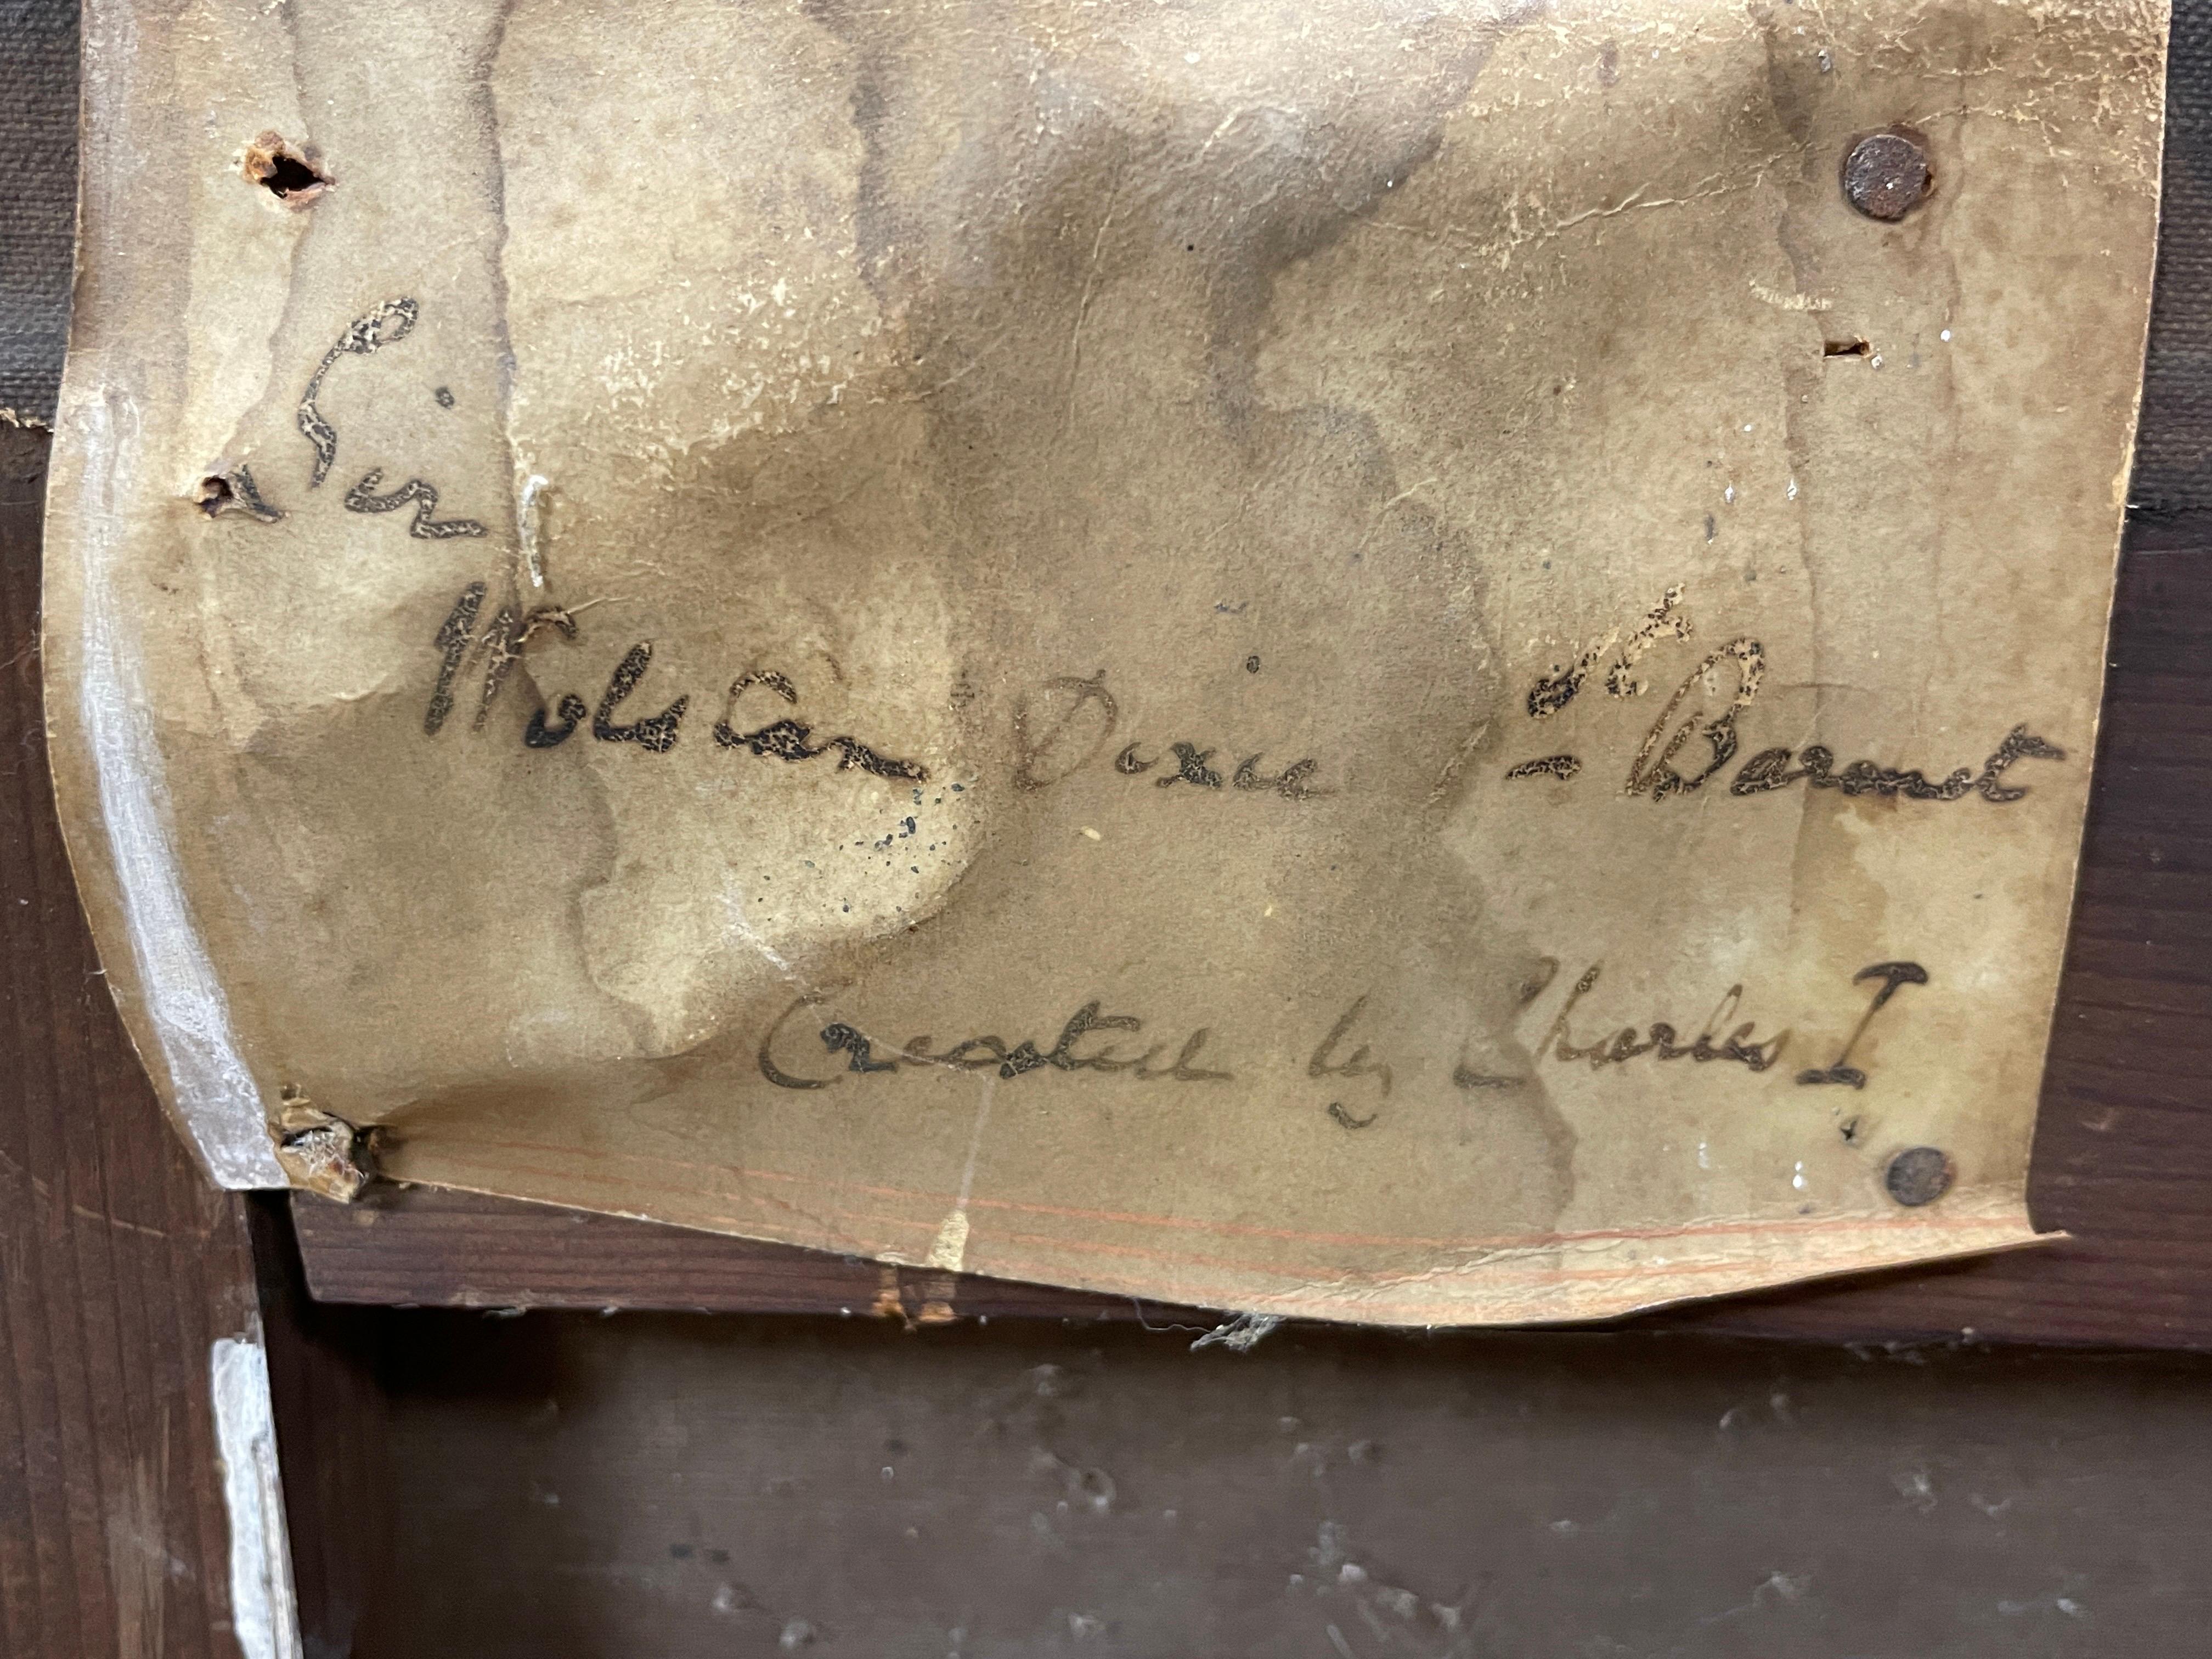 Sir
Wolstan Dixie 1st Baronet
Created by Charles I